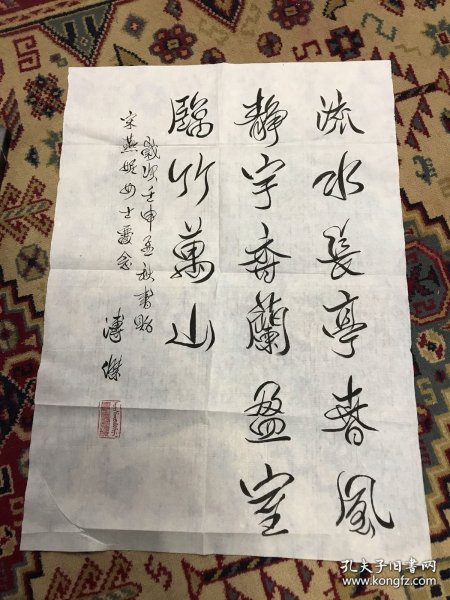 流水長亭春風
靜宇齋蘭盈室
臨竹萬山
歲次壬申孟秋書貽
宋燕妮女士愛念
溥傑
孔夫子旧书网
www.kongfz.com